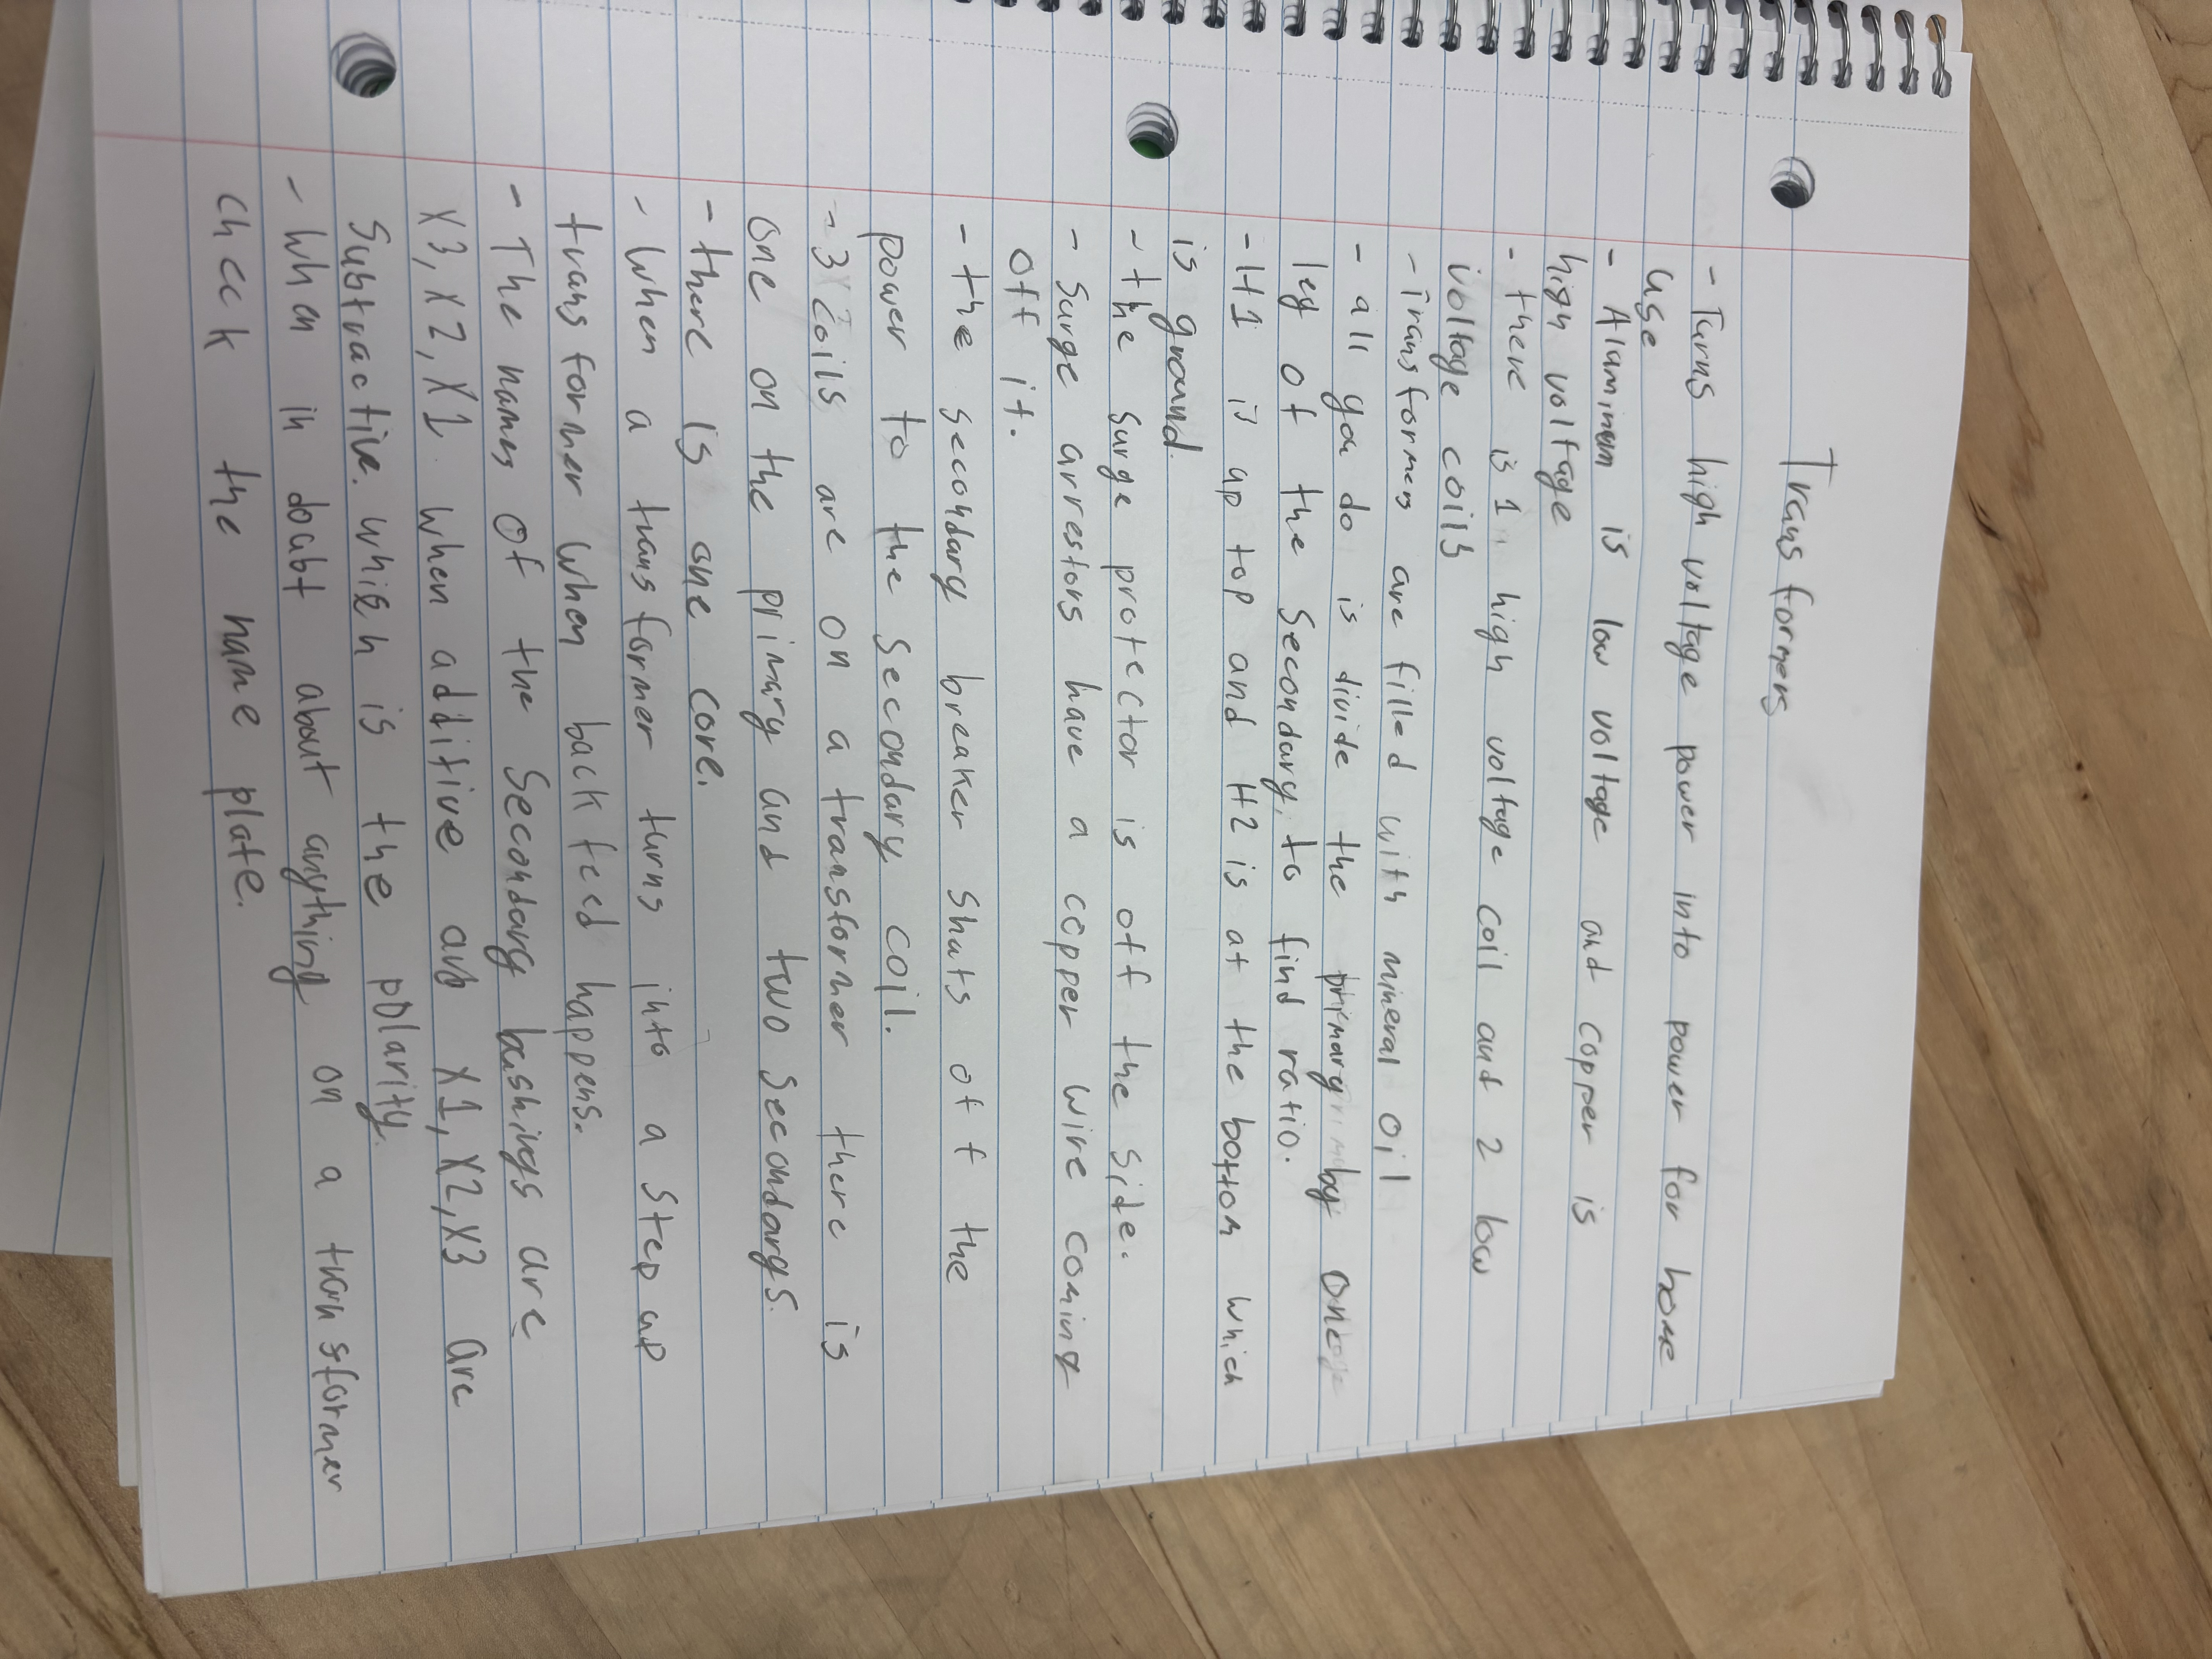 Transformers
- Turns high voltage power into power for home
use
- Aluminum is low voltage and copper is
high voltage
- there is 1 high voltage coil and 2 low
voltage coils
- Transformers are filled with mineral oil
- all you do is divide the primary by one
leg of the Secondary, to find ratio.
- H1 is up top and H2 is at the bottom which
is ground.
- the surge protector is off the side.
- Surge arrestors have a copper wire coming
off it.
- the secondary breaker shuts off the
power to the secondary coil.
- 3 coils are on a transformer there is
one on the primary and two secondarys.
- there is one core.
- when a transformer turns into a step up
transformer when back feed happens.
- The names of the Secondary bushings are
X3, X2, X1 when additive X1, X2, X3 are
Subtractive. which is the polarity.
- when in doubt about anything on a transformer
check the name plate.